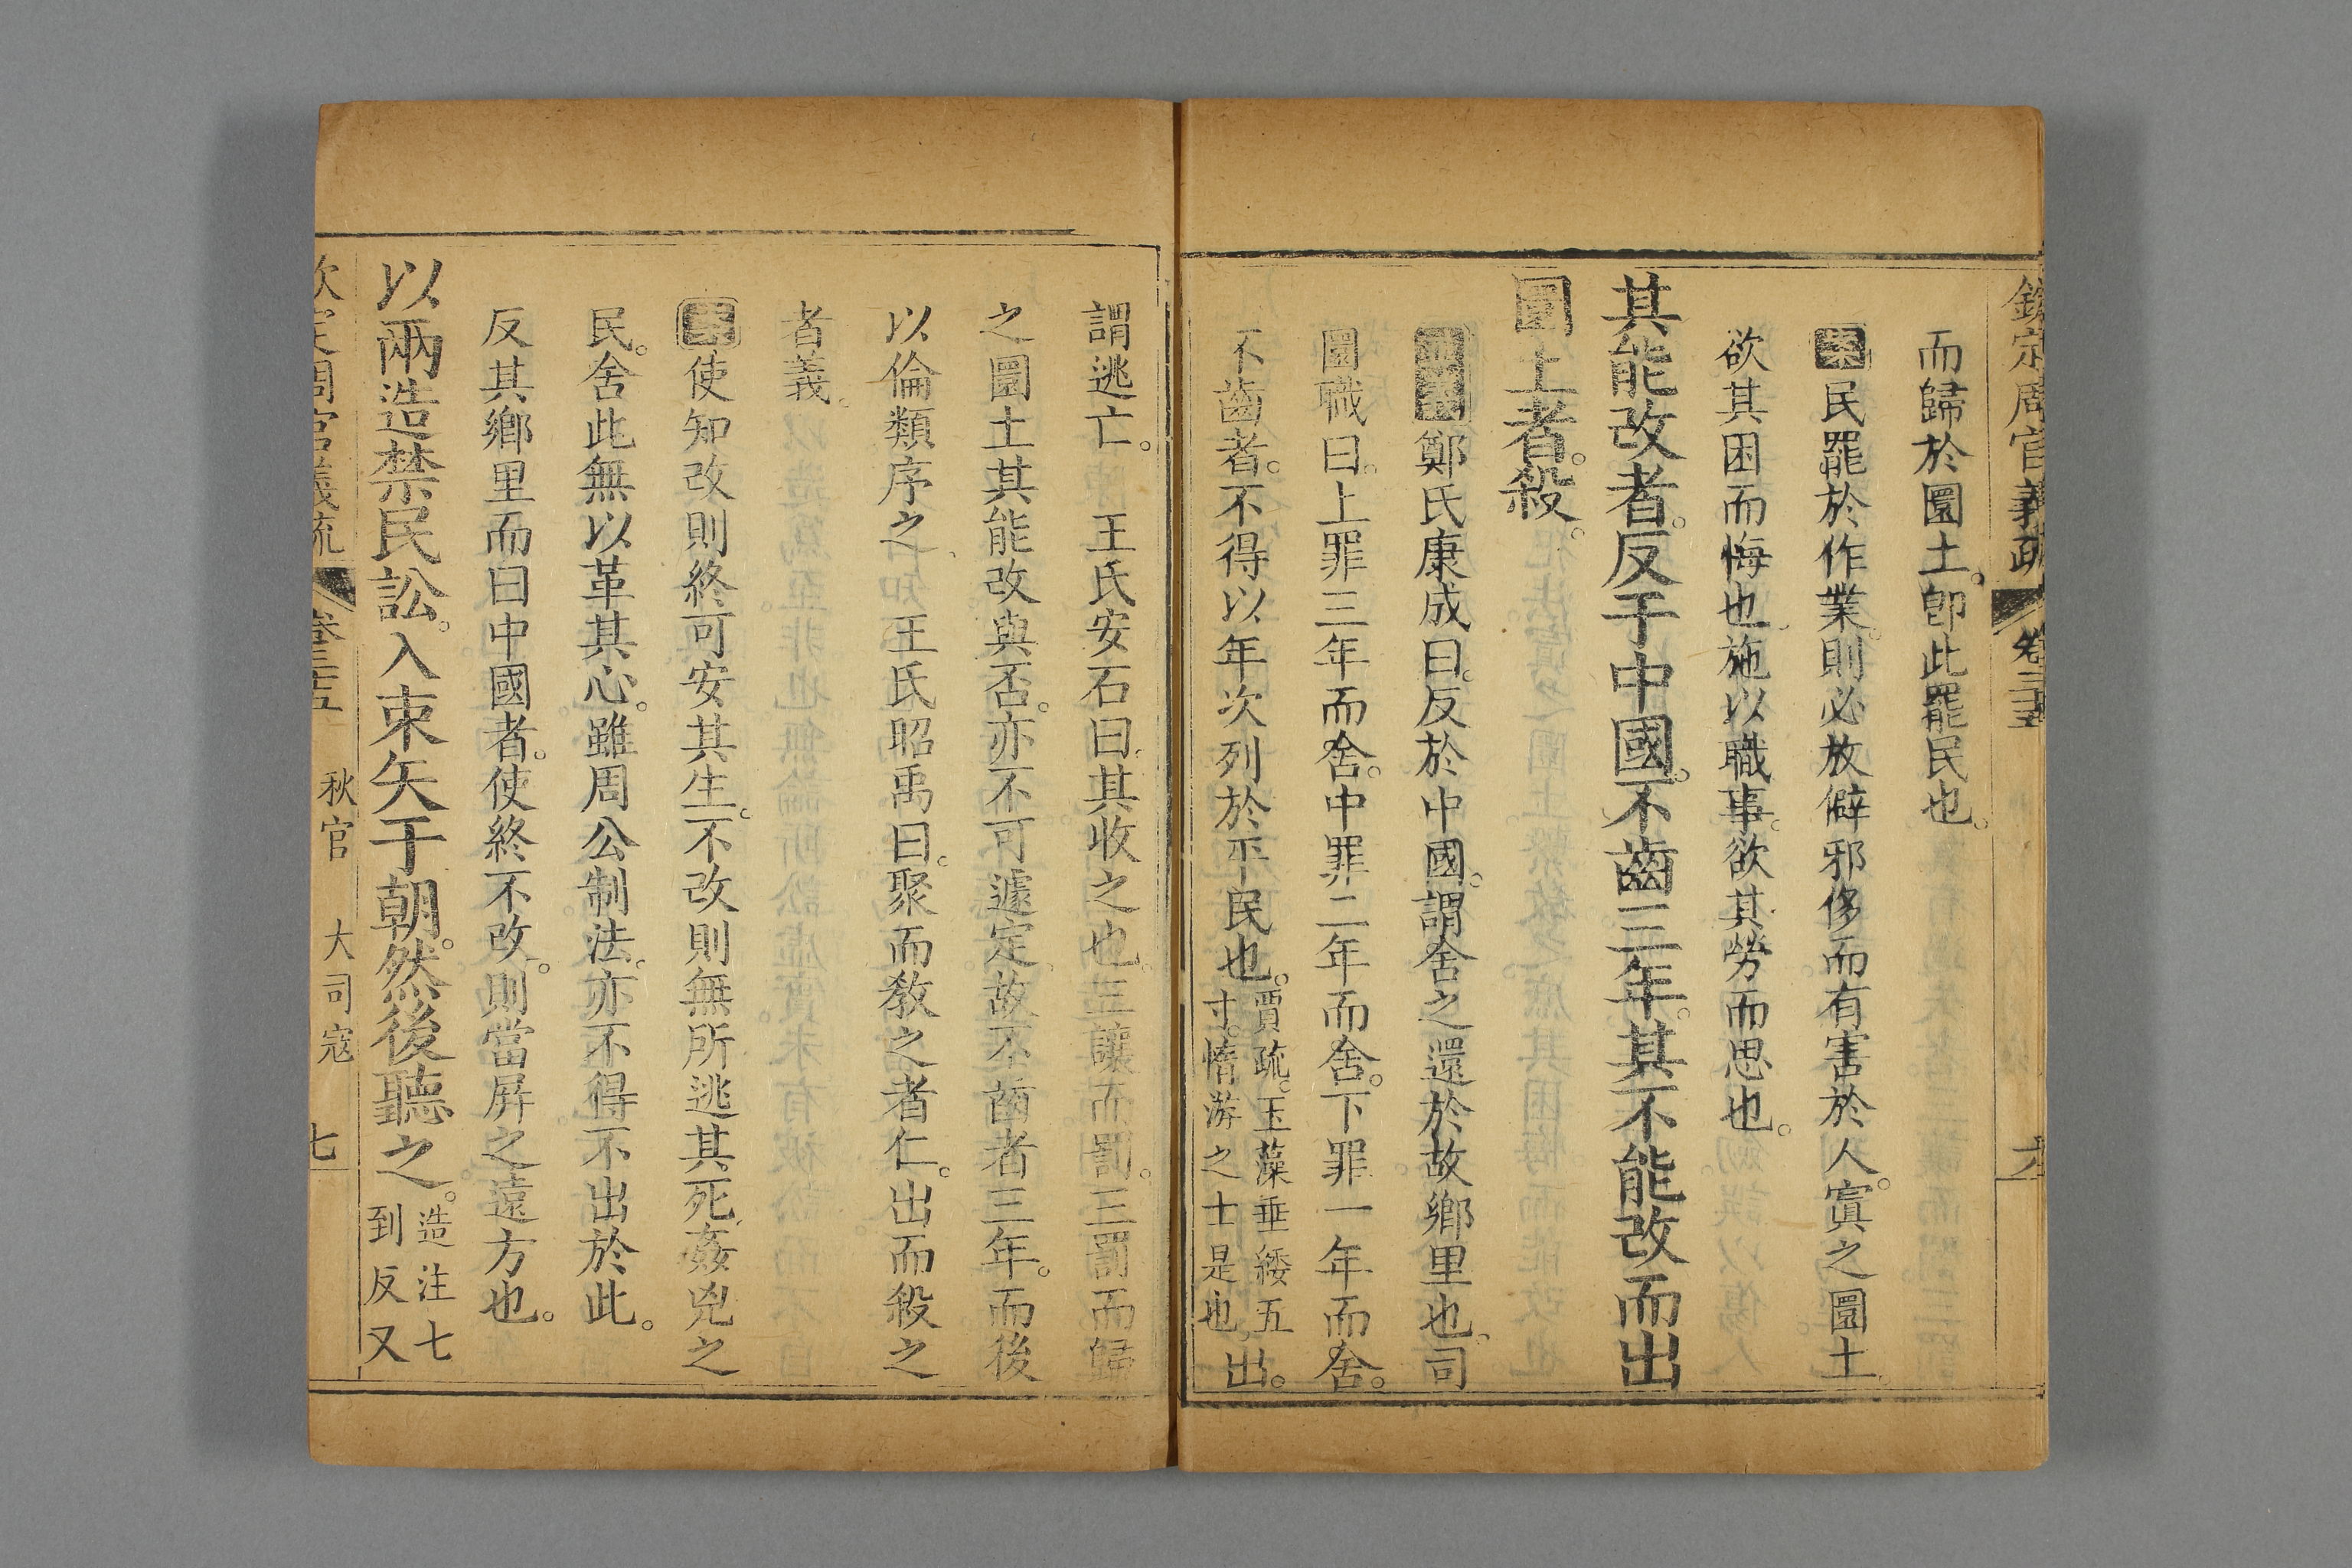 欽定周官義疏 卷三十五
而歸於圜土。卽此罷民也。
案民罷於作業。則必放僻邪侈而有害於人。寘之圜土
欲其困而悔也。施以職事。欲其勞而思也。
其能改者。反于中國。不齒三年。其不能改而出
圜土者。殺。
鄭氏康成曰。反於中國。謂舍之還於故鄉里也。司
圜職曰。上罪三年而舍。中罪二年而舍。下罪一年而舍。
不齒者。不得以年次列於平民也。賈疏。玉藻垂緌五寸。惰游之士是也。出。
謂逃亡。 王氏安石曰。其收之也。三讓而罰。三罰而歸
之圜土其能改與否。亦不可遽定。故不齒者三年。而後
以倫類序之。 王氏昭禹曰。聚而敎之者仁。出而殺之
者義。
案使知改則終可安其生。不改則無所逃其死。姦兇之
民。舍此無以革其心。雖周公制法。亦不得不出於此。
反其鄉里而曰中國者。使終不改。則當屛之遠方也。
以兩造禁民訟。入束矢于朝。然後聽之。造注七到反又
欽定周官義疏 卷三十五 秋官 大司寇 七